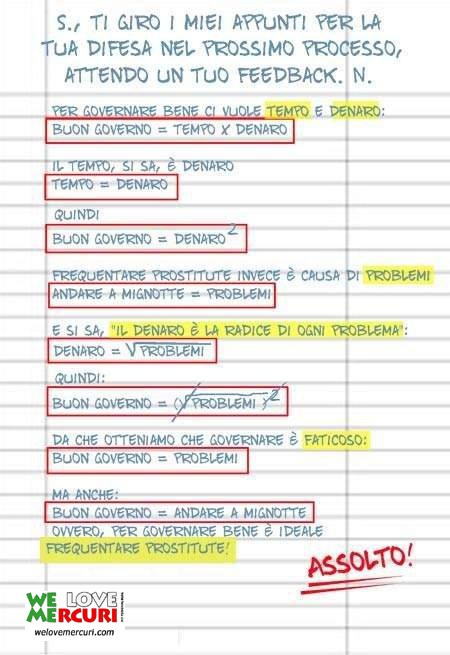 S., TI GIRO I MIEI APPUNTI PER LA
TUA DIFESA NEL PROSSIMO PROCESSO,
ATTENDO UN TUO FEEDBACK. N.
PER GOVERNARE BENE CI VUOLE TEMPO E DENARO:
BUON GOVERNO = TEMPO X DENARO
IL TEMPO, SI SA, È DENARO
TEMPO = DENARO
QUINDI
BUON GOVERNO = DENARO²
FREQUENTARE PROSTITUTE INVECE È CAUSA DI PROBLEMI
ANDARE A MIGNOTTE = PROBLEMI
E SI SA, "IL DENARO È LA RADICE DI OGNI PROBLEMA":
DENARO = √PROBLEMI
QUINDI:
BUON GOVERNO = (√PROBLEMI)²
DA CHE OTTENIAMO CHE GOVERNARE È FATICOSO:
BUON GOVERNO = PROBLEMI
MA ANCHE:
BUON GOVERNO = ANDARE A MIGNOTTE
OVVERO, PER GOVERNARE BENE È IDEALE
FREQUENTARE PROSTITUTE!
ASSOLTO!
WE LOVE
MERCURI
welovemercuri.com